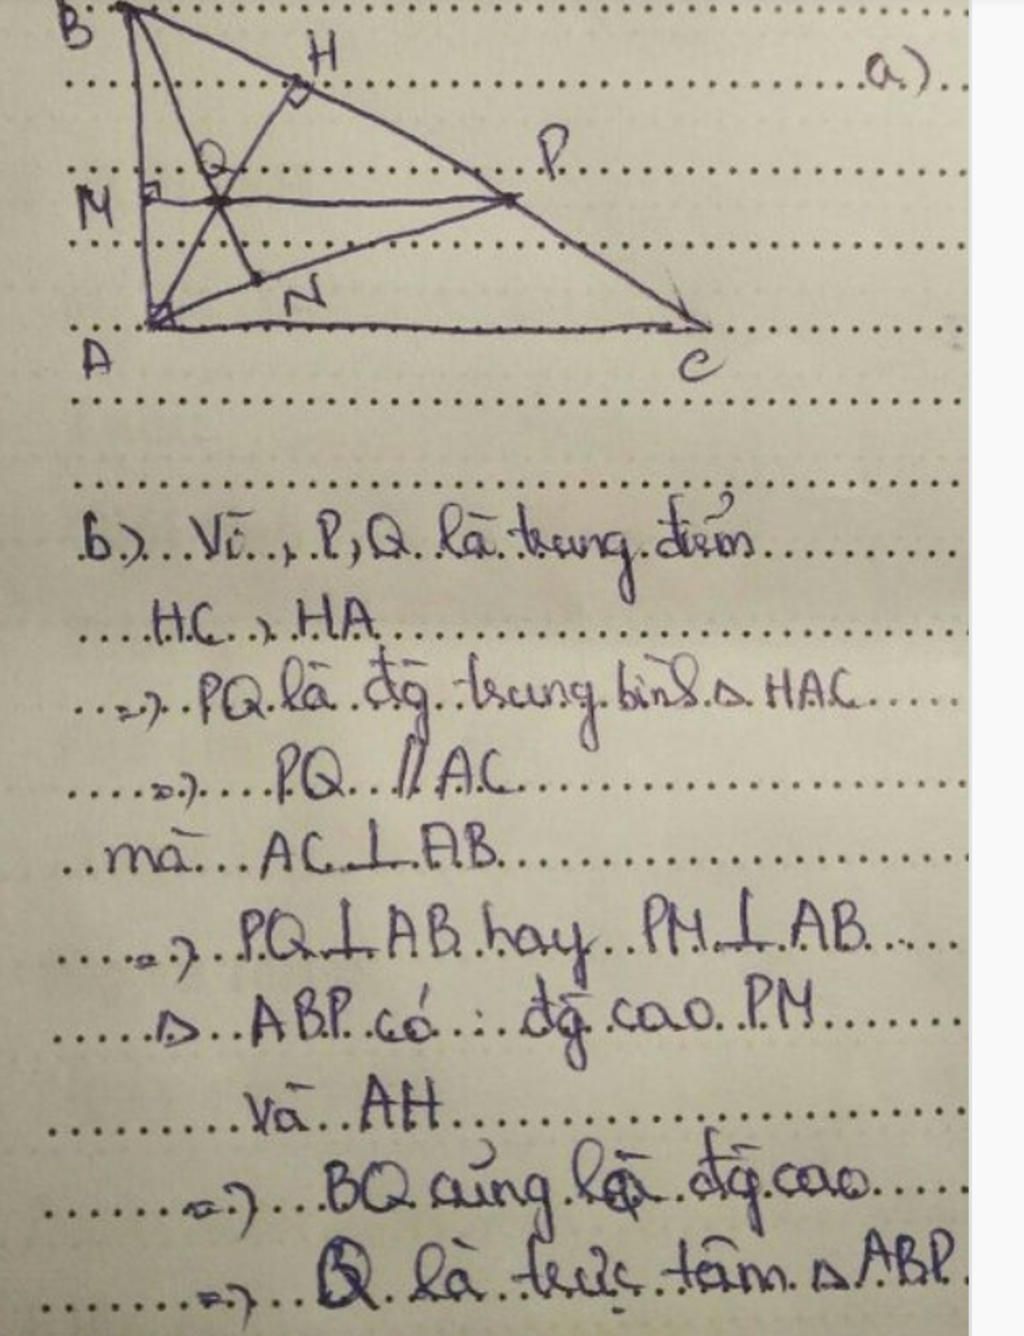 B
H
a)
Q
P
M
N
A
C
b) Vì, P, Q là trung điểm
HC, HA
=> PQ là đg trung bình Δ HAC
=> PQ // AC
mà AC ⊥ AB
=> PQ ⊥ AB hay PM ⊥ AB
Δ ABP có: đg cao PM
và AH
=> BQ cũng là đg cao
=> Q là trực tâm Δ ABP